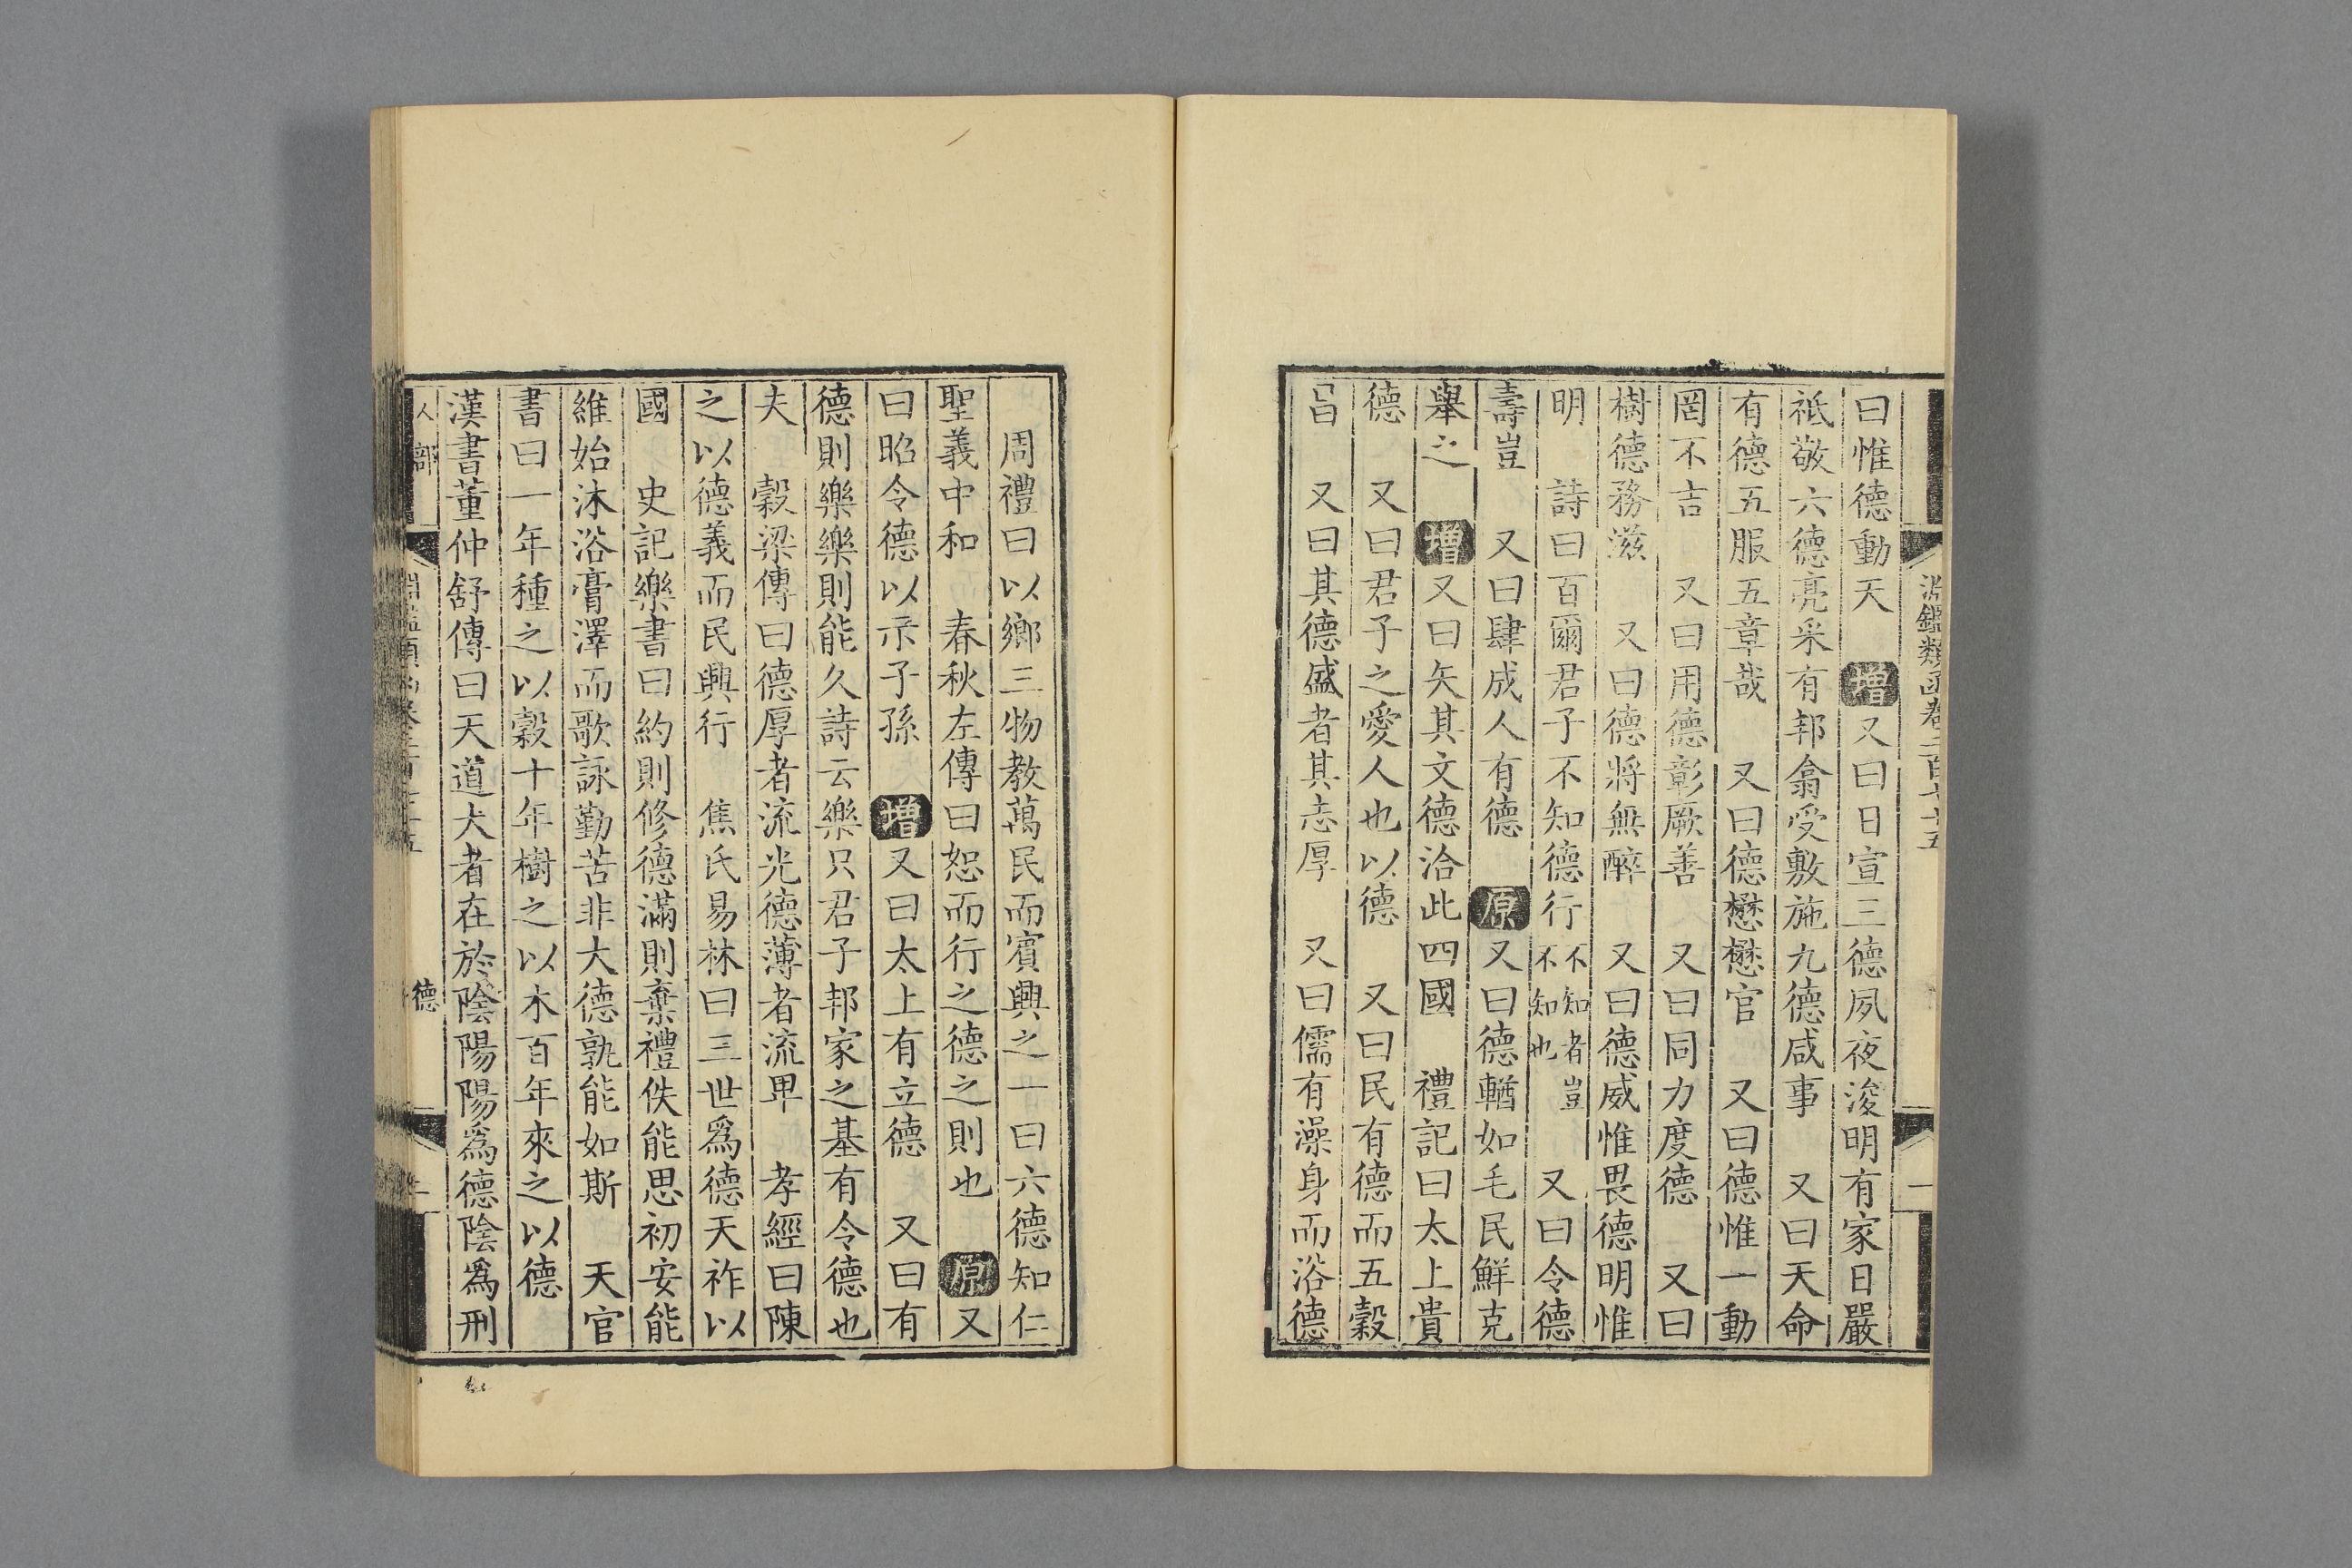 淵鑑類函卷二百七十五
一
曰惟德動天　增又曰日宣三德夙夜浚明有家日嚴
祗敬六德亮采有邦翕受敷施九德咸事　又曰天命
有德五服五章哉　又曰德懋懋官　又曰德惟一動
罔不吉　又曰用德彰厥善　又曰同力度德　又曰
樹德務滋　又曰德將無醉　又曰德威惟畏德明惟
明　詩曰百爾君子不知德行不知者不知也豈　又曰令德
壽豈　又曰肆成人有德　原又曰德輶如毛民鮮克
舉之　增又曰矢其文德洽此四國　禮記曰太上貴
德　又曰君子之愛人也以德　又曰民有德而五穀
昌　又曰其德盛者其志厚　又曰儒有澡身而浴德
周禮曰以鄉三物教萬民而賓興之一曰六德知仁
聖義中和　春秋左傳曰恕而行之德之則也　原又
曰昭令德以示子孫　增又曰太上有立德　又曰有
德則樂樂則能久詩云樂只君子邦家之基有令德也
夫　穀梁傳曰德厚者流光德薄者流卑　孝經曰陳
之以德義而民興行　焦氏易林曰三世為德天祚以
國　史記樂書曰約則修德滿則棄禮佚能思初安能
維始沐浴膏澤而歌詠勤苦非大德孰能如斯　天官
書曰一年種之以穀十年樹之以木百年來之以德
漢書董仲舒傳曰天道大者在於陰陽陽為德陰為刑
人部
德